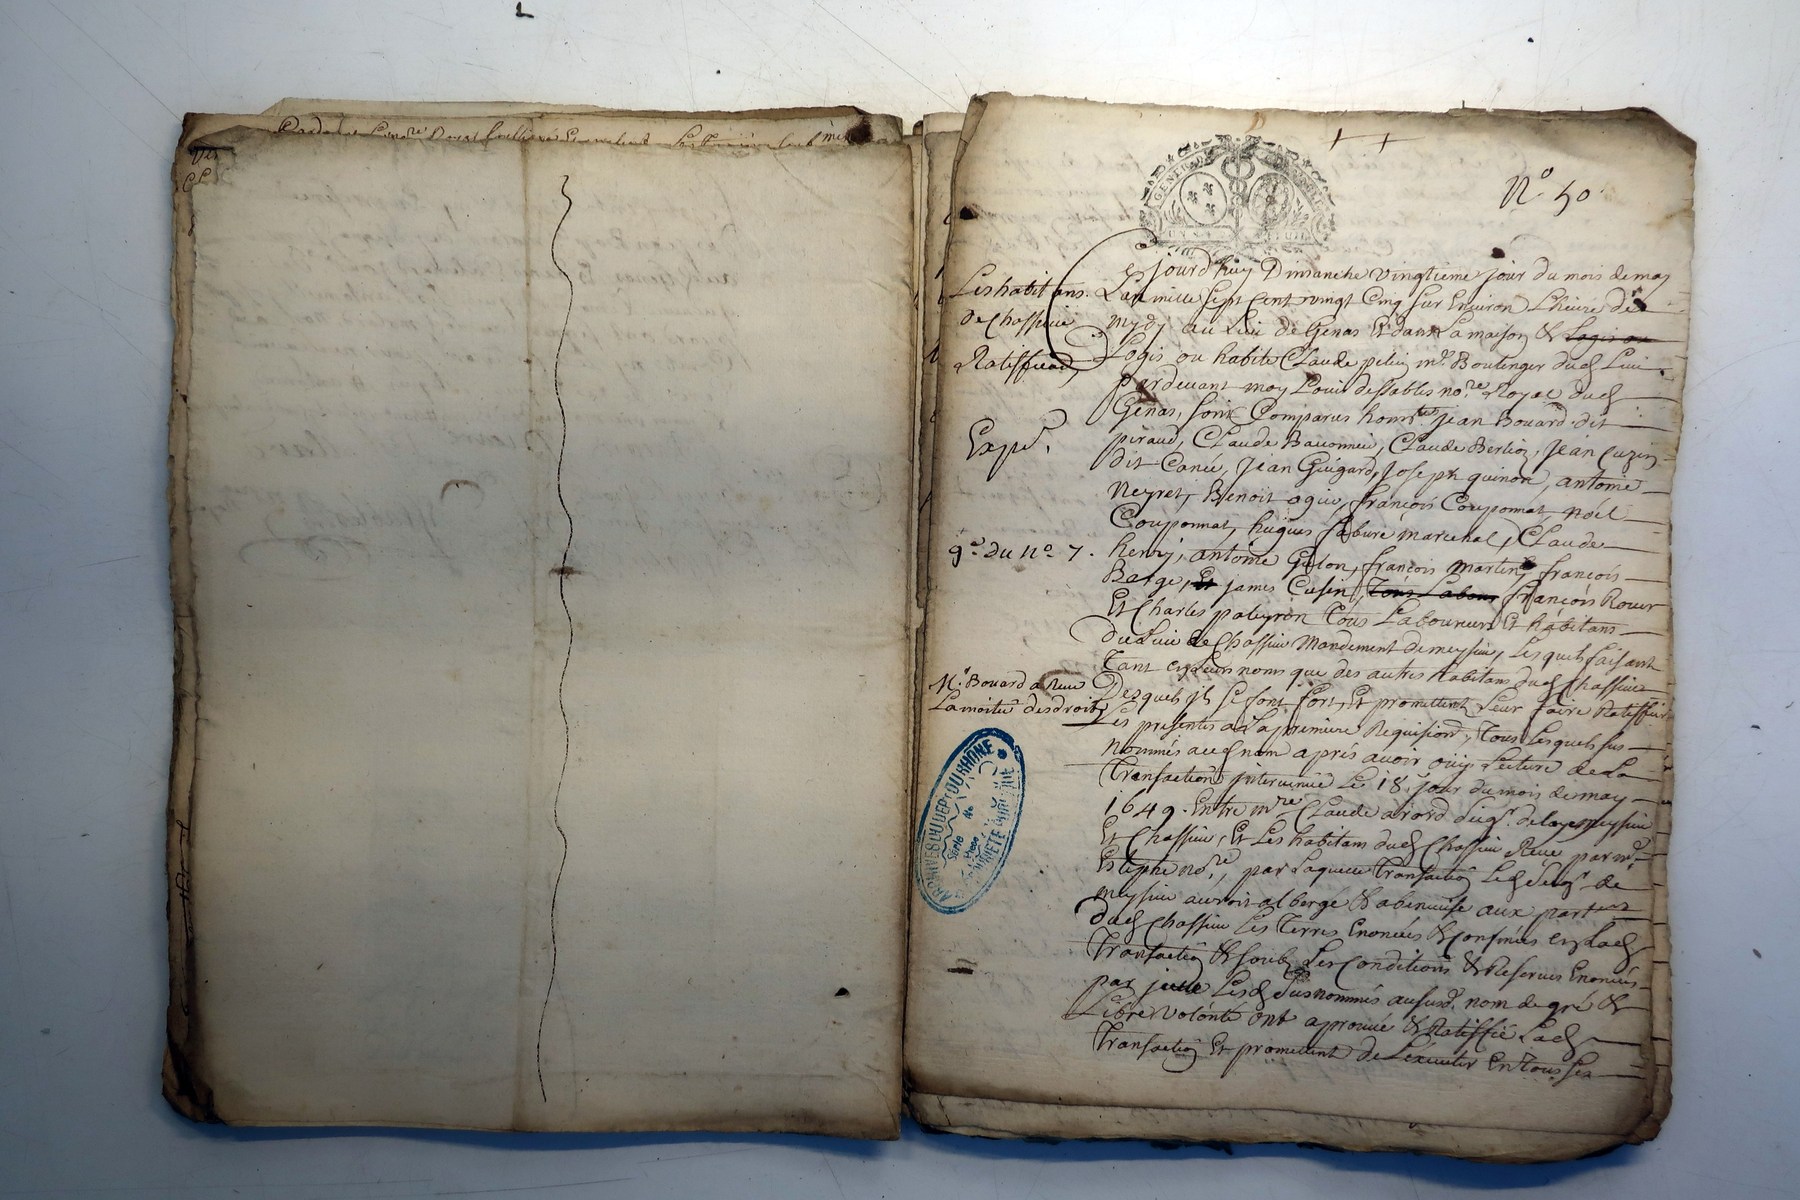 N.o 50
Ce jourd'huy Dimanche vingtieme jour du mois de may
L'an mille sept cent vingt cinq sur Environ L'heure de
mydy au Lieu de Genas Et dans La maison & Logis ou
Logis ou habite Claude petin m.e Boulenger dud Lieu
pardevant moy Louis dessables no.re Royal dud
Genas, sont Comparus hom.tes jean Bouard dit
piraud, Claude Bauonnier, Claude Berlioz, Jean Cuzin
dit Canié, Jean Guigard, Joseph quinon, antoine
Neyret, Benoit oguie, françois Couponnat, noél
Couponnat, hugues fabure marechal, Claude
henry, antoine Gelon, françois martin, françois
Barge, Et james Cusin, Tous Labour françois Rouer
Et Charles paleyron Tous Laboureurs Et habitans
du Lieu de Chassieu Mandement de meysieu, Lesquels faisant
Tant en Leurs noms que des autres habitans dud Chassieu
Desquels ils se font fort, Et promettent Leur faire Ratiffier
Les presentes a La premiere Requision, Tous Lesquels sus
nommés aud nom aprés avoir ouy Lecture de La
Transaction intervenue Le 18.e jour du mois de may
1649. Entre m.re Claude arod seig.r de meysieu
Et Chassieu, Et Les habitans dud Chassieu Receue par m.e
Estephe no.re, par Laquelle Transaction Led Seig.r de
meysieu auroit albergé & abenevise aux part.ers
dud Chassieu Les Terres Enoncées & Confinées en Lad
Transaction & soubs Les Conditions & Reserves Enoncées
par jcelle Lesd susnommés aususd. nom de gré &
Libre volonté ont aprouvé & Ratiffié Lad
Transaction Et promettent de L'executer En Tous ses
Les habitans
de Chassieu
Ratiffica.on
Exp.é
9.e du N.o 7.
N.a Bouard a Receu
La moitié des droits
GENERALITE
ARCHIVES DU DEPT DU RHONE
Série